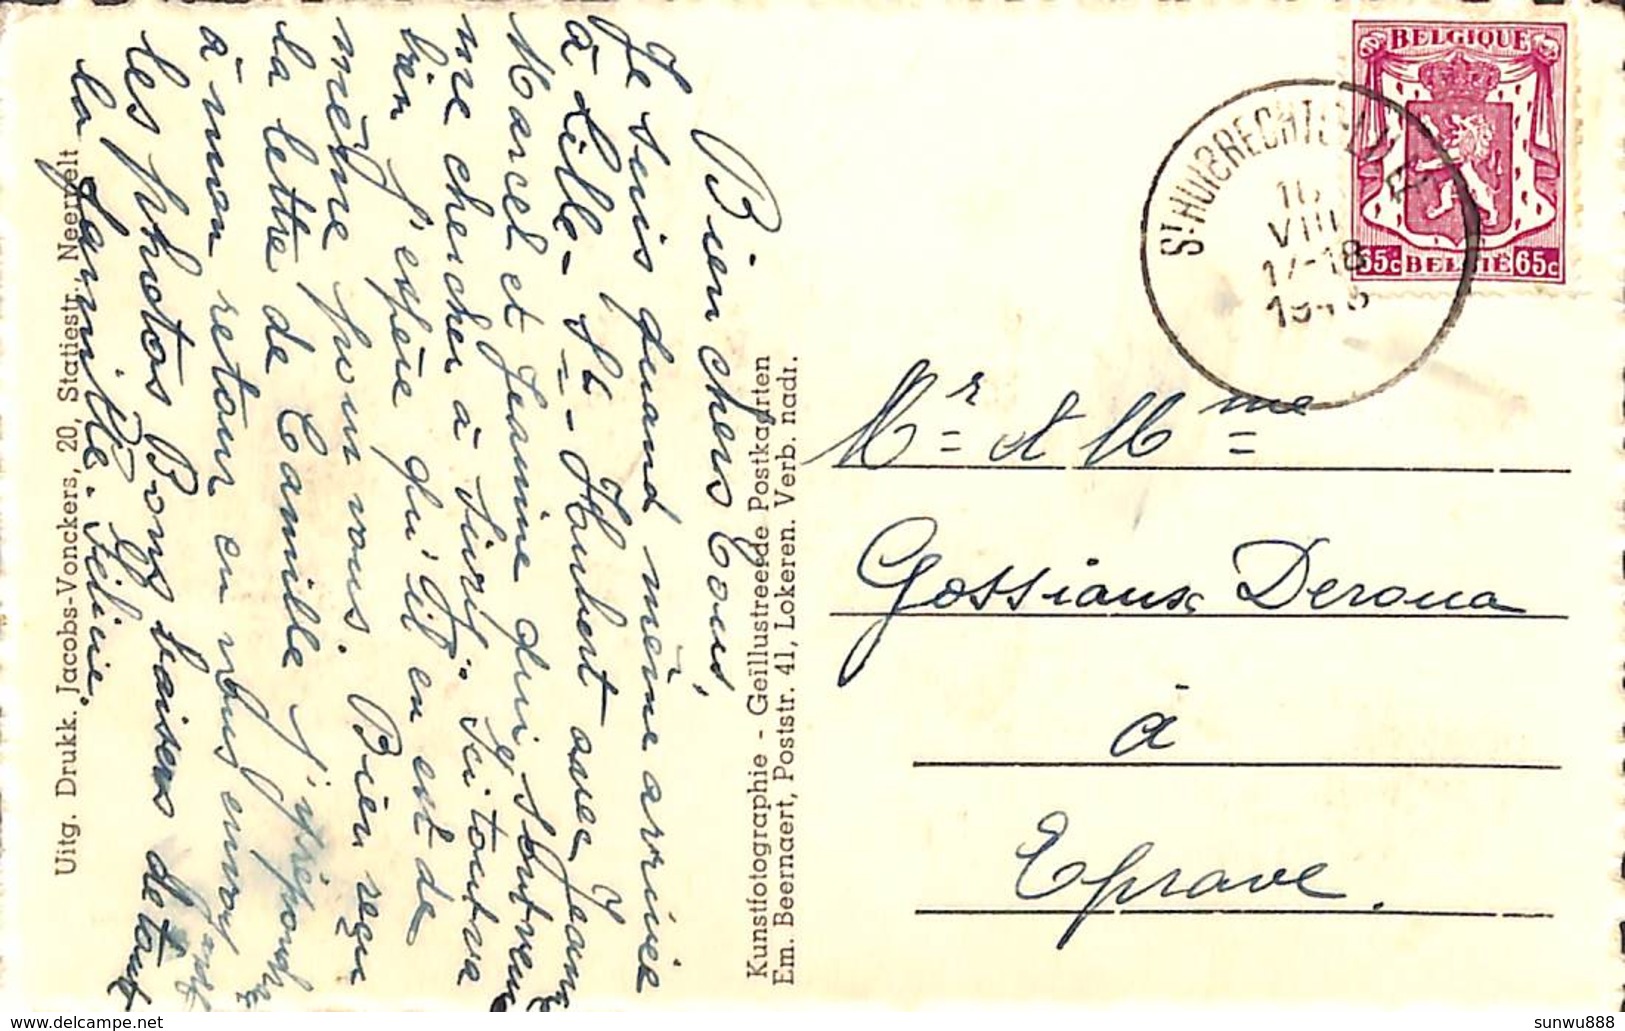 Bien chers Tous,
Je suis quand même arrivée
à Lille-St-Hubert avec Jeanne
Marcel et Jeanine qui sont venu
me chercher à Ici tout va
bien j'espère qu'il en est de
même pour vous. Bien reçu
la lettre de Camille j'y répondrai
à mon retour en vous envoyant
les photos Bons baisers de toute
la famille. Félicie.
Uitg. Drukk. Jacobs-Vonckers, 20, Statiestr., Neerpelt
Kunstfotographie - Geïllustreerde Postkaarten
Em. Beernaert, Poststr. 41, Lokeren. Verb. nadr.
BELGIQUE
65c BELGIË 65c
ST-HUIBRECHTS-LILLE
VIII
17-18
Mr et Mme
Gossiaux Deroua
à
Eprave.
delcampe.net
sunwu888